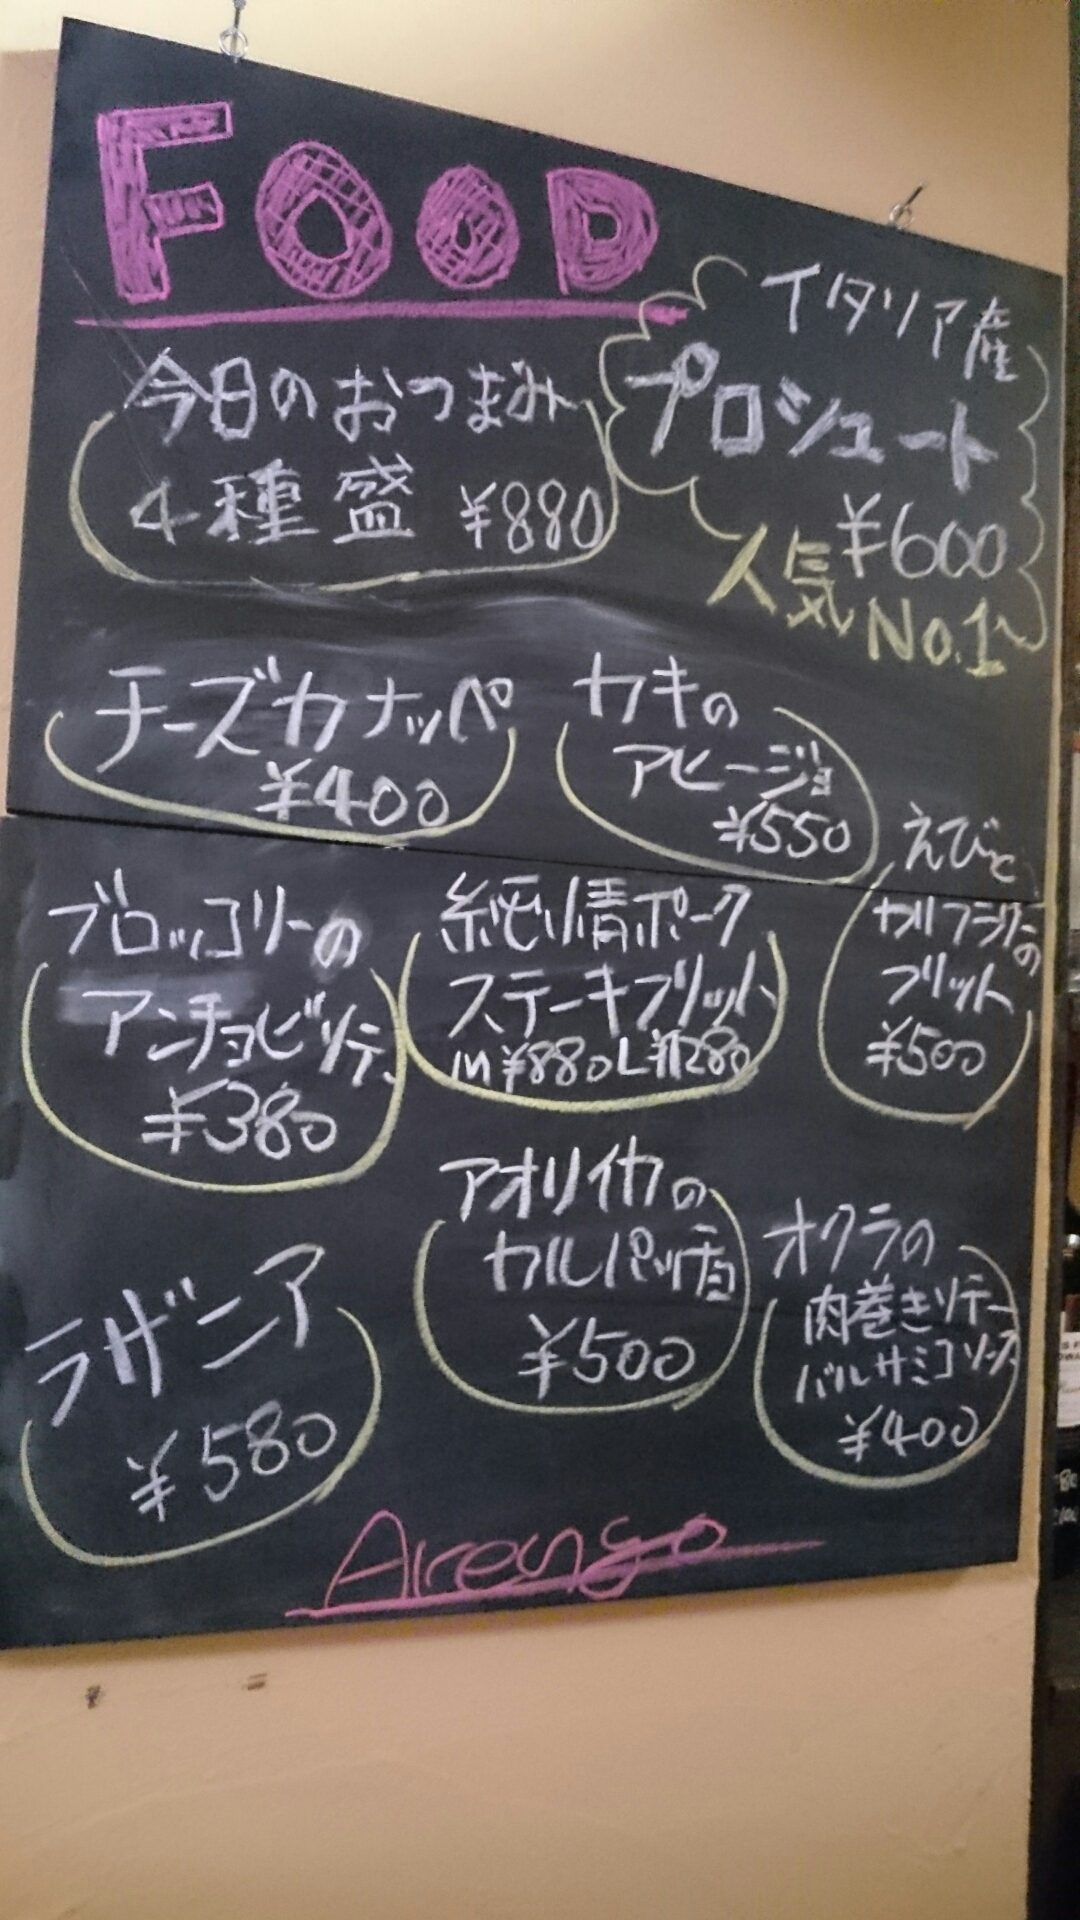 FOOD
イタリア産
プロシュート
¥600
人気No.1
今日のおつまみ
4種盛 ¥880
チーズカナッペ
¥400
カキの
アヒージョ
¥550
えびと
カリフラワーの
フリット
¥500
ブロッコリーの
アンチョビソテー
¥380
純情ポーク
ステーキフリット
M ¥880 L ¥1280
アオリイカの
カルパッチョ
¥500
オクラの
肉巻きソテー
バルサミコソース
¥400
ラザニア
¥580
Arengo